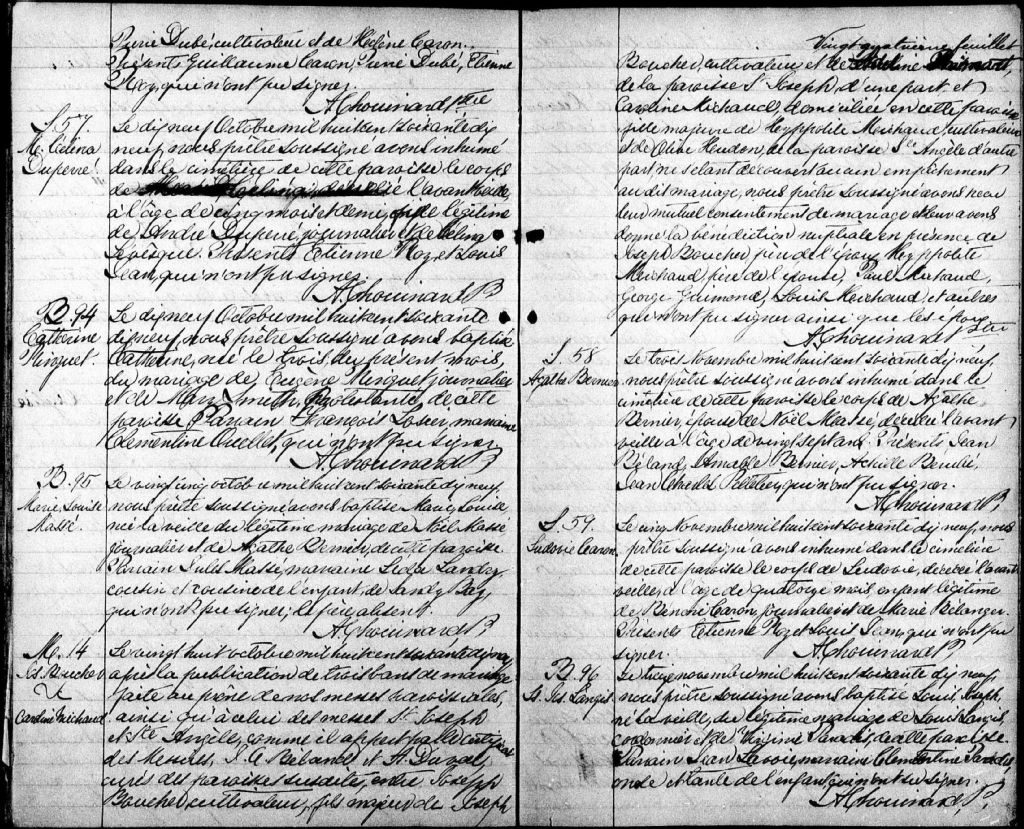 Pierre Dubé, cultivateur et de Helène Caron.
Présents Guillaume Caron, Pierre Dubé, Etienne
Roy, qui n'ont pu signer.
A Chouinard Ptre
S. 57.
M. Celena
Duperré
Le dix neuf Octobre mil huit cent soixante dix
neuf, nous prêtre soussigné avons inhumé
dans le cimetière de cette paroisse le corps
de décédée l'avant veille,
à l'âge de cinq mois et demi, fille légitime
de André Duperré, journalier et de Celina
Lévesque. Présents Etienne Roy et Louis
Jean, qui n'ont pu signer.
A Chouinard P.
B. 94
Catherine
Minguet
Le dix neuf Octobre mil huit cent soixante
dix neuf, nous prêtre soussigné avons baptisé
Catherine, née le trois du présent mois,
du mariage de Eugène Minguet journalier
et de Mary Smith, de cette
paroisse Parrain François Losier, marraine
Clementine Ouellet, qui n'ont pu signer
A Chouinard P.
B. 95
Marie Louise
Massé
Le vingt cinq octobre mil huit cent soixante dix neuf,
nous prêtre soussigné avons baptisé Marie Louise
née la veille du légitime mariage de Noël Massé
journalier et de Agathe Bernier, de cette paroisse.
Parrain Jules Massé, marraine Landry
cousin et cousine de l'enfant, de Sandy Bay,
qui n'ont pu signer; le père absent.
A Chouinard P.
M. 14
Js. Bucher
&
Caroline Michaud
Le vingt huit octobre mil huit cent soixante dix neuf
après la publication de trois bans de mariage
faite au prône de nos messes paroissiales,
ainsi qu'à celui des messes St Joseph
et Ste Angèle, comme il appert par le certificat
des Messires, J. O. Beland et A. Duval,
curés des paroisses susdites, entre Joseph
Boucher cultivateur, fils majeur de Joseph
Vingt quatrième feuillet
Boucher, cultivateur et de
de la paroisse St Joseph d'une part et
Caroline Michaud, domiciliée en cette paroisse
fille majeure de Hyppolite Michaud, cultivateur
et de Olive Heudon, de la paroisse Ste Angèle d'autre
part, ne s'étant découvert aucun empêchement
au dit mariage, nous prêtre soussigné avons reçu
leur mutuel consentement de mariage et leur avons
donné la bénédiction nuptiale en présence de
Joseph Boucher, père de l'époux, Hyppolite
Michaud, père de l'épouse, Paul Michaud,
George Gaumond, Louis Michaud, et autres
qui n'ont pu signer ainsi que les époux
A. Chouinard Ptre
S. 58
Agathe Bernier
Le trois Novembre mil huit cent soixante dix neuf,
nous prêtre soussigné avons inhumé dans le
cimetière de cette paroisse le corps de Agathe
Bernier, épouse de Noël Massé, décédée l'avant
veille à l'âge de vingt sept ans. Présents Jean
Béland, Amable Bernier, Achille Bérubé,
Jean Charles Pelletier, qui n'ont pu signer.
A Chouinard P.
S. 59.
Ludovic Caron
Le cinq Novembre mil huit cent soixante dix neuf, nous
prêtre soussigné avons inhumé dans le cimetière
de cette paroisse le corps de Ludovic, décédé l'avant
veille à l'âge de quatorze mois enfant légitime
de Bénoni Caron, journalier et de Marie Bélanger.
Présents Etienne Roy et Louis Jean, qui n'ont pu
signer.
A Chouinard P.
B. 96
Ls. Jos. Langis
Le treize novembre mil huit cent soixante dix neuf,
nous prêtre soussigné avons baptisé Louis Joseph,
né la veille, du légitime mariage de Louis Langis,
cordonnier et de Virginie Paradis, de cette paroisse.
Parrain Jean Lavoie, marraine Clementine Paradis,
oncle et tante de l'enfant, qui n'ont su signer.
A Chouinard, P.